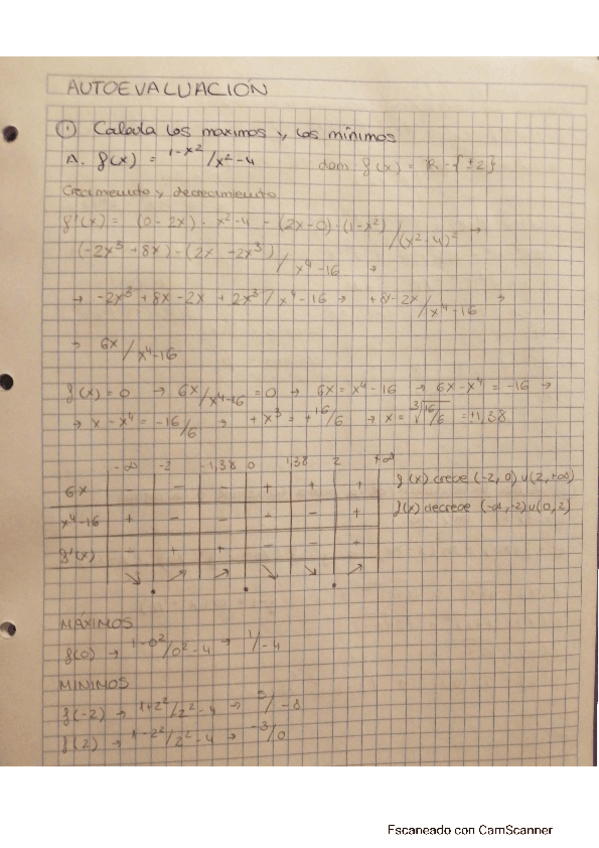 AUTOEVALUACIÓN
① Calcula los maximos y los mínimos
A. f(x) = 1-x²/x²-4 dom. f(x) = R - {±2}
Crecimiento y decrecimiento
f'(x) = (0-2x) · x²-4 - (2x-0) · (1-x²)/(x²-4)² →
(-2x³+8x) - (2x-2x³)/x⁴-16 →
→ -2x³+8x-2x+2x³/x⁴-16 → +8-2x/x⁴-16 →
→ 6x/x⁴-16
f(x) = 0 → 6x/x⁴-16 = 0 → 6x = x⁴-16 → 6x-x⁴ = -16 →
→ x-x⁴ = -16/6 → +x³ = +16/6 → x = ∛16/6 = ±1,38
-∞ -2 -1,38 0 1,38 2 +∞
6x - - - + + + f(x) crece (-2,0)u(2,+∞)
x⁴-16 + - - - - + f(x) decrece (-∞,-2)u(0,2)
f'(x) - + + - - +
↘ ↗ ↗ ↘ ↘ ↗
MÁXIMOS
f(0) → 1-0²/0²-4 → 1/-4
MINIMOS
f(-2) → 1+2²/2²-4 → 5/-8
f(2) → 1-2²/2²-4 → -3/0
Escaneado con CamScanner